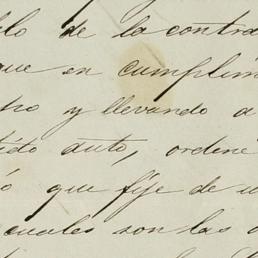 de la contra
que en cumplim
y llevando a
auto, ordene
que fije de u
cuales son las